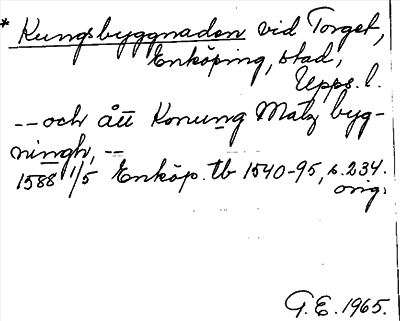 * Kungsbyggnaden vid Torget,
Enköping, stad,
Upps. l.
-- ochått Konung Matz byg-
ningh, --
1588 1/5 Enköp. tb 1540-95, s. 234.
orig.
G.E. 1965.